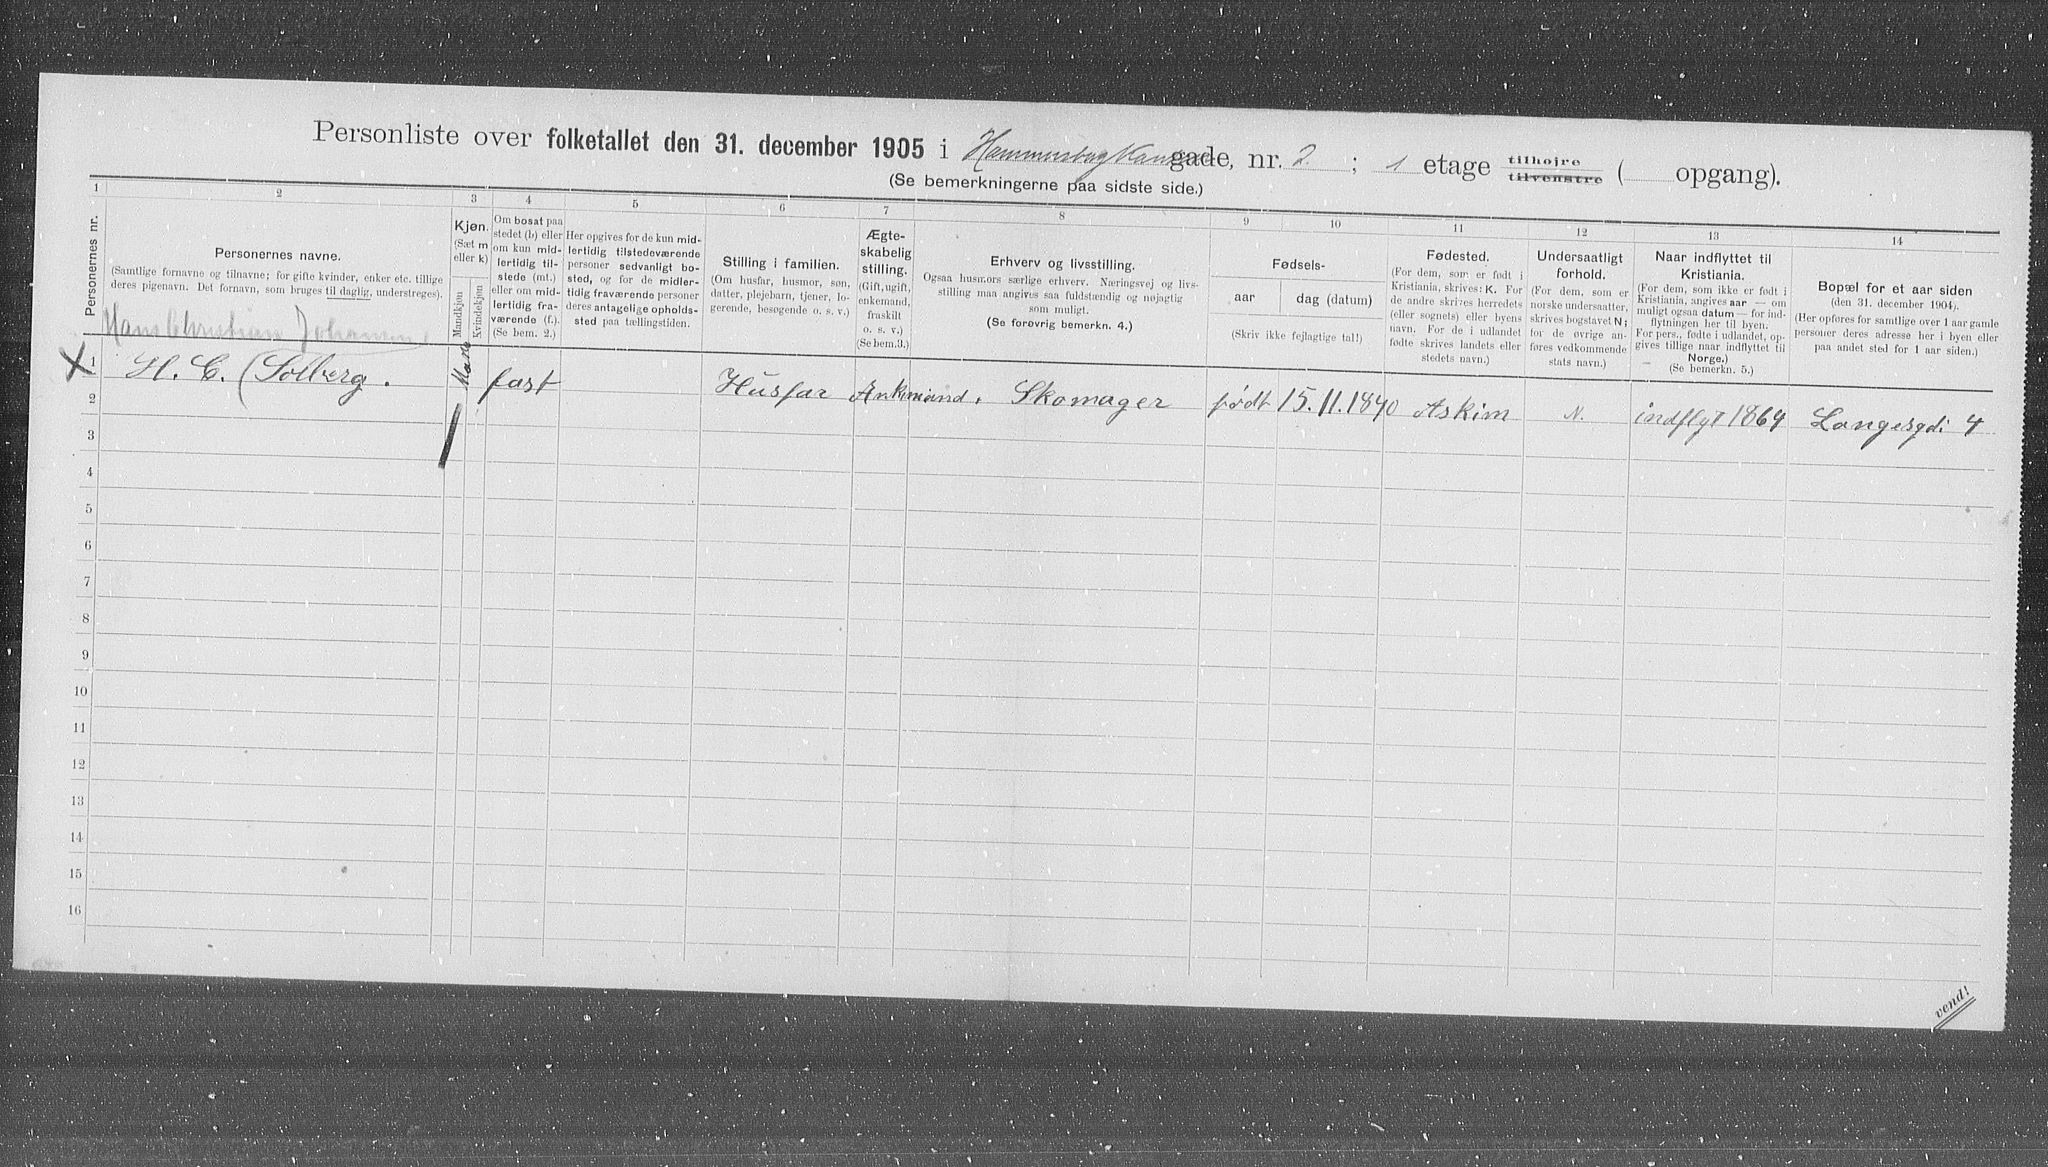 Personliste over folketallet den 31. december 1905 i gade, nr. 2 ; 1 etage tilhøjre tilvenstre ( opgang).
(Se bemerkningerne paa sidste side.)
1 2 3 4 5 6 7 8 9 10 11 12 13 14
Personernes nr.
Personernes navne.
(Samtlige fornavne og tilnavne; for gifte kvinder, enker etc. tillige
deres pigenavn. Det fornavn, som bruges til daglig, understreges).
Kjøn.
(Sæt m
eller k)
Mandkjøn
Kvindekjøn
Om bosat paa
stedet (b) eller
om kun mid-
lertidig til-
stede (mt.)
eller om mid-
lertidig fra-
værende (f.).
(Se bem. 2.)
Her opgives for de kun mid-
lertidig tilstedeværende
personer sedvanligt bo-
sted, og for de midler-
tidig fraværende personer
deres antagelige opholds-
sted paa tællingstiden.
Stilling i familien.
(Om husfar, husmor, søn,
datter, plejebarn, tjener, lo-
gerende, besøgende o. s. v.)
Ægte-
skabelig
stilling.
(Gift, ugift,
enkemand,
fraskilt
o. s. v.)
(Se bem.3.)
Erhverv og livsstilling.
Ogsaa husmors særlige erhverv. Næringsvej og livs-
stilling maa angives saa fuldstændig og nøjagtig
som muligt.
(Se forøvrig bemerkn. 4.)
Fødsels-
aar dag (datum)
(Skriv ikke fejlagtige tal!)
Fødested.
(For dem, som er født i
Kristiania, skrives: K. For
de andre skrives herredets
(eller sognets) eller byens
navn. For de i udlandet
fødte skrives landets eller
stedets navn.)
Undersaatligt
forhold.
(For dem, som er
norske undersaatter,
skrives bogstavet N;
for de øvrige an-
føres vedkommende
stats navn.)
Naar indflyttet til
Kristiania.
(For dem, som ikke er født i
Kristiania, angives aar — om
muligt ogsaa datum — for ind-
flytningen her til byen.
For pers., fødte i udlandet, op-
gives tillige naar indflyttet til
Norge.)
(Se bemerkn. 5.)
Bopæl for et aar siden
(den 31. december 1904).
(Her opføres for samtlige over 1 aar gamle
personer deres adresse her i byen eller
paa andet sted for 1 aar siden.)
Hans Christian Johansen
X 1 H. C. (Solberg. fast Husfar Skomager født 15.11.1840 Askim N. indflyt 1864 Langesgdi 4
2
3
4
5
6
7
8
9
10
11
12
13
14
15
16
vend!